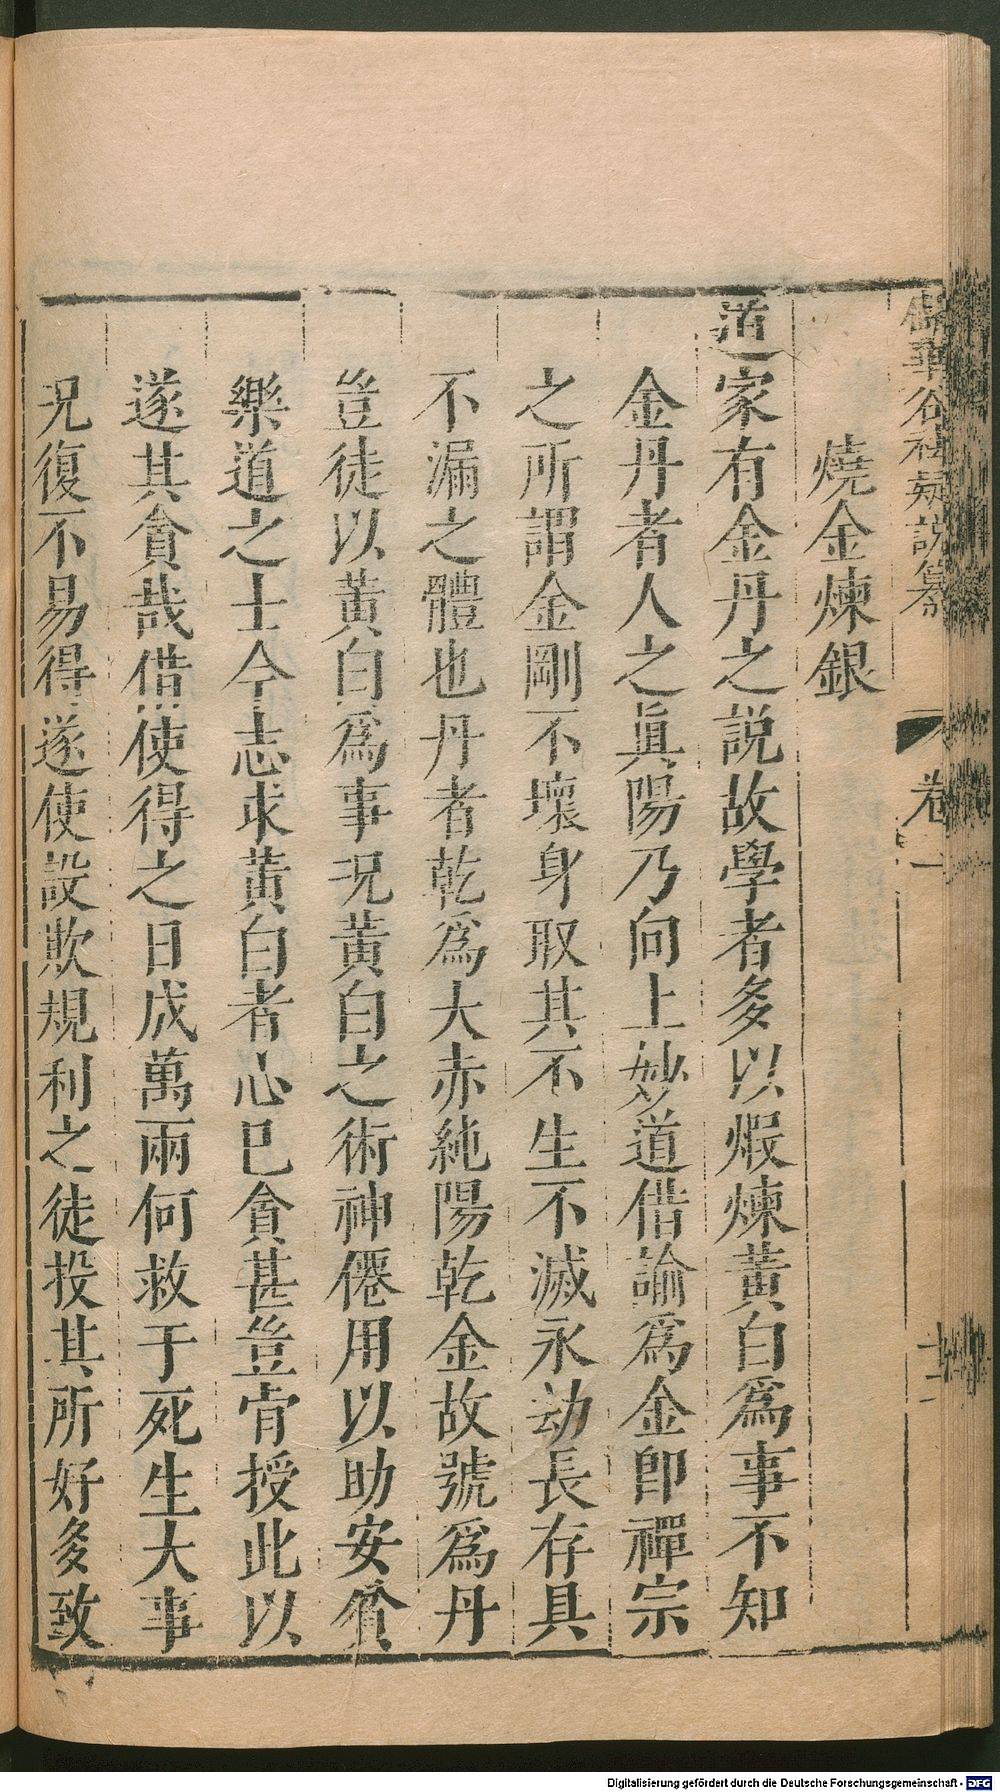 儲華谷祛疑說纂
卷一
十二
燒金煉銀
道家有金丹之說故學者多以煆煉黃白爲事不知
金丹者人之眞陽乃向上妙道借諭爲金卽禪宗
之所謂金剛不壞身取其不生不滅永劫長存具
不漏之體也丹者乾爲大赤純陽乾金故號爲丹
豈徒以黃白爲事況黃白之術神僊用以助安貧
樂道之士今志求黃白者心已貪甚豈肯授此以
遂其貪哉借使得之日成萬兩何救于死生大事
況復不易得遂使設欺規利之徒投其所好多致
Digitalisierung gefördert durch die Deutsche Forschungsgemeinschaft - DFG